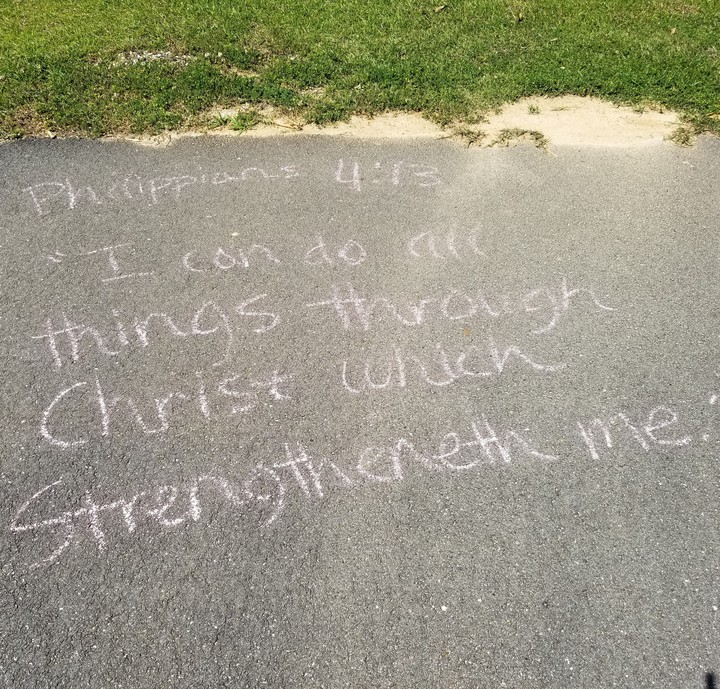 Philippians 4:13
"I can do all
things through
Christ which
Strengtheneth me."